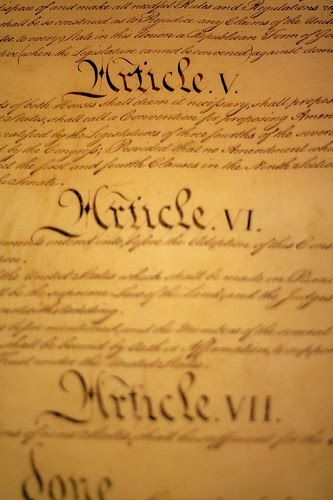 dispose of and make all needful Rules and Regulations
shall be so construed as to Prejudice any Claims of the United
to every State in this Union a Republican Form of
(when the Legislature cannot be convened) against
Article. V.
of both Houses shall deem it necessary, shall propose
States, shall call a Convention for proposing Amend
ratified by the Legislatures of three fourths of the several
by the Congress; Provided that no Amendment
the first and fourth Clauses in the Ninth Section
Senate.
Article. VI.
entered into, before the Adoption of this Cons
the United States which shall be made in
be the supreme Law of the Land; and the Judges
notwithstanding.
before mentioned, and the Members of the several
shall be bound by Oath or Affirmation, to support
under the United States.
Article. VII.
of nine States, shall be sufficient for the
done